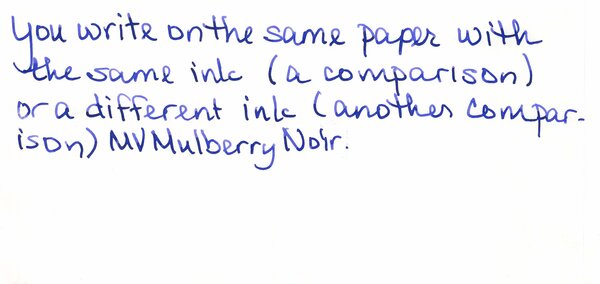 You write on the same paper with
the same ink (a comparison)
or a different ink (another compar-
ison) MV Mulberry Noir.